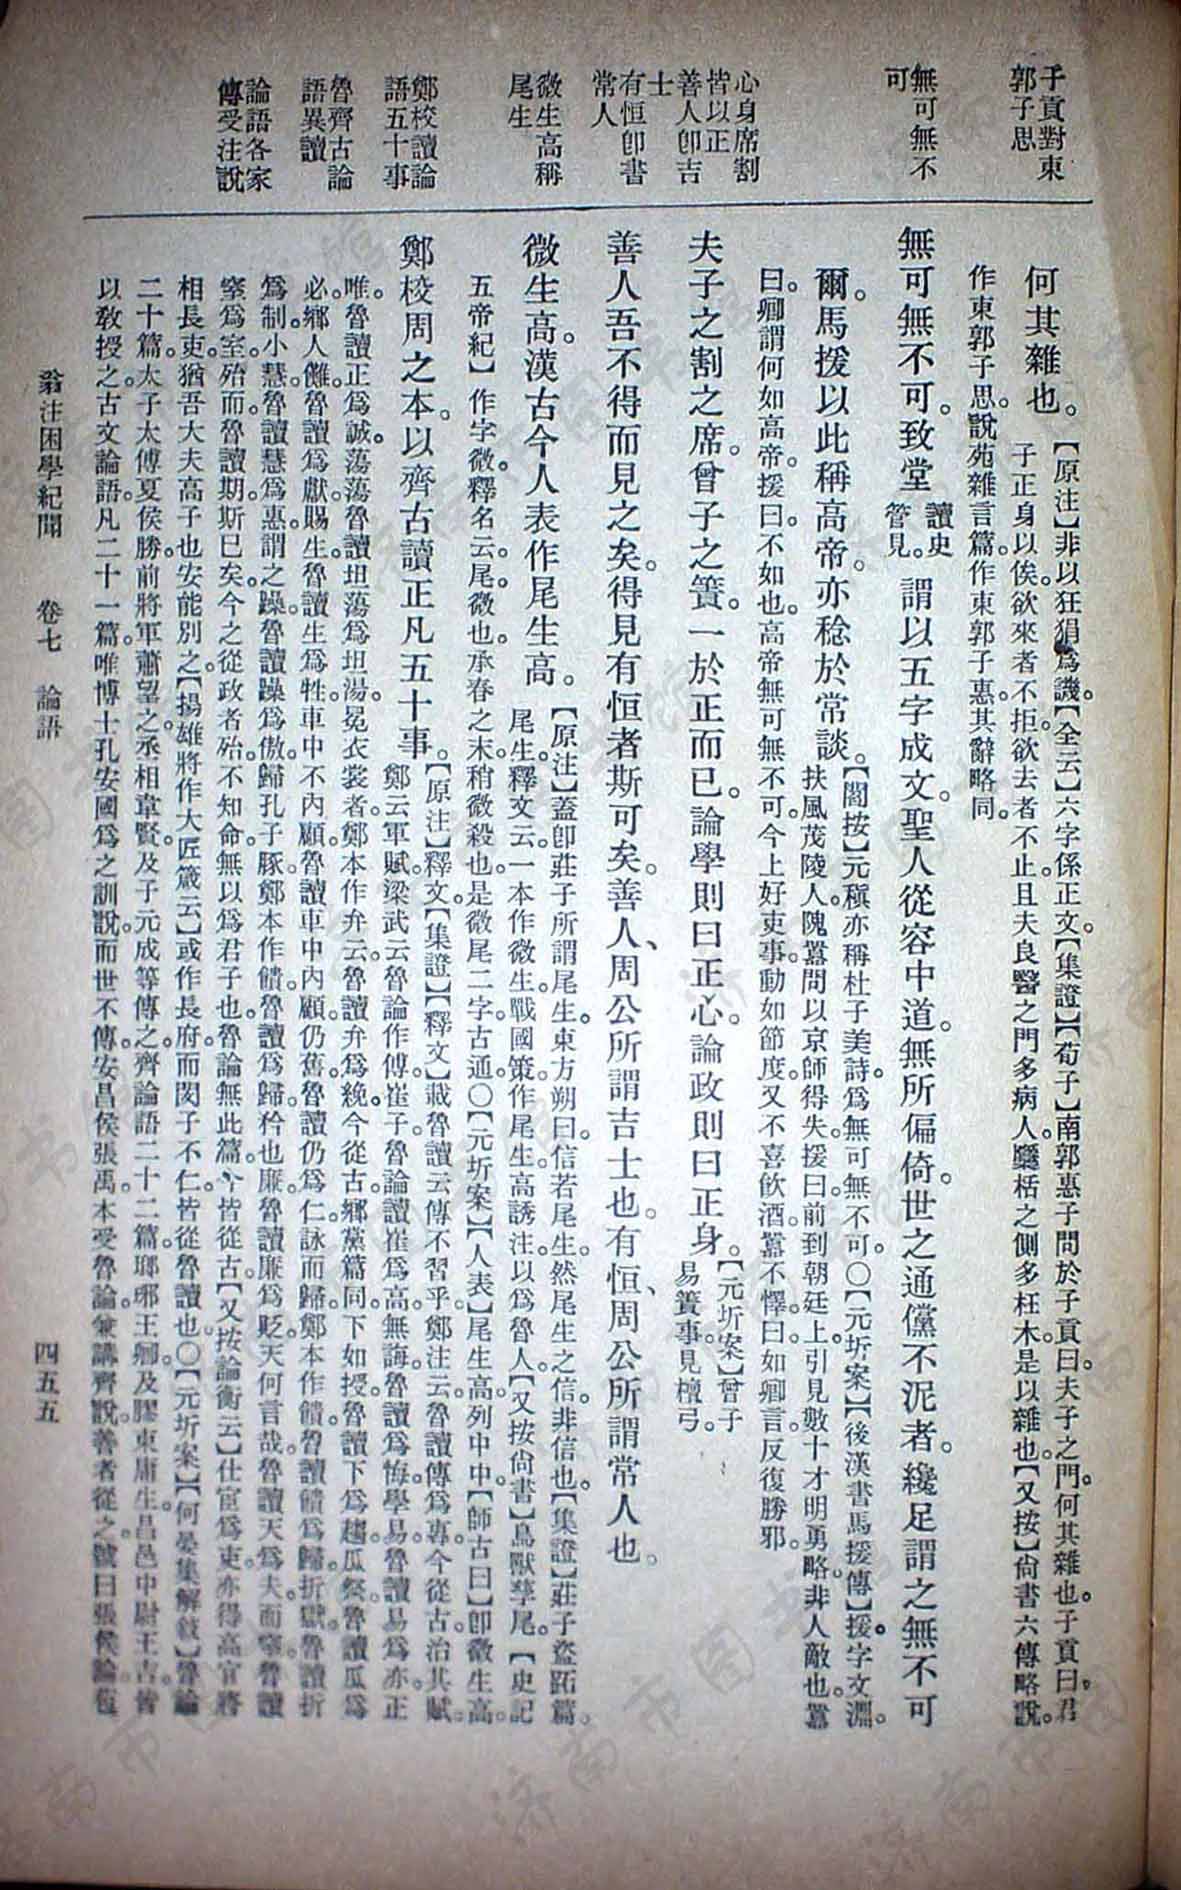 子貢對東
郭子思
無可無不
可
心身席割
皆以正
善人卽吉
士
有恒卽書
常人
微生高稱
尾生
鄭校讀論
語五十事
魯齊古論
語異讀
論語各家
傳受注說
何其雜也。
【原注】非以狂狷爲譏。【全云】六字係正文。【集證】【荀子】南郭惠子問於子貢曰。夫子之門。何其雜也。子貢曰。君
子正身以俟。欲來者不拒。欲去者不止。且夫良醫之門多病人。檃栝之側多枉木。是以雜也。【又按】尙書六傳略說。
作東郭子思。說苑雜言篇。作東郭子惠。其辭略同。
無可無不可。致堂
讀史
管見。
謂以五字成文。聖人從容中道。無所偏倚。世之通儻不泥者。纔足謂之無不可
爾。馬援以此稱高帝。亦稔於常談。
【閻按】元稹亦稱杜子美詩。爲無可無不可。〇【元圻案】【後漢書馬援傳】援。字文淵。
扶風茂陵人。隗囂問以京師得失。援曰。前到朝廷。上引見數十。才明勇略。非人敵也。囂
曰。卿謂何如高帝。援曰。不如也。高帝無可無不可。今上好吏事。動如節度。又不喜飮酒。囂不懌。曰。如卿言。反復勝邪。
夫子之割之席。曾子之簀。一於正而已。論學則曰正心。論政則曰正身。
【元圻案】曾子
易簀事。見檀弓。
善人吾不得而見之矣。得見有恒者斯可矣。善人、周公所謂吉士也。有恒、周公所謂常人也。
微生高。漢古今人表作尾生高。
【原注】蓋卽莊子所謂尾生。東方朔曰。信若尾生。然尾生之信。非信也。【集證】莊子盜跖篇。
尾生。釋文云。一本作微生。戰國策作尾生。高誘注。以爲魯人。【又按尙書】鳥獸孳尾。【史記
五帝紀】作字微。釋名云。尾。微也。承春之末。稍微殺也。是微尾二字古通〇【元圻案】【人表】尾生高。列中中。【師古曰】卽微生高。
鄭校周之本。以齊古讀正凡五十事。
【原注】釋文。【集證】【釋文】載魯讀云。傳不習乎。鄭注云。魯讀傳爲專。今從古。治其賦。
鄭云軍賦。梁武云。魯論作傅。崔子。魯論讀崔爲高。無誨。魯讀爲悔。學易。魯讀易爲亦。正
唯。魯讀正爲誠。蕩蕩。魯讀坦蕩爲坦湯。冕衣裳者。鄭本作弁。云。魯讀弁爲絻。今從古。鄉黨篇同。下如授。魯讀下爲趨。瓜祭。魯讀瓜爲
必。鄉人儺。魯讀爲獻。賜生。魯讀生爲牲。車中不內顧。魯讀車中內顧。仍舊。魯讀仍爲仁。詠而歸。鄭本作饋。魯讀饋爲歸。折獄。魯讀折
爲制。小慧。魯讀慧爲惠。謂之躁。魯讀躁爲傲。歸孔子豚。鄭本作饋。魯讀爲歸。矜也廉。魯讀廉爲貶。天何言哉。魯讀天爲夫。而窒。魯讀
窒爲室。殆而。魯讀期斯已矣。今之從政者殆。不知命。無以爲君子也。魯論無此篇。今皆從古。【又按論衡云】仕宦爲吏。亦得高官。將
相長吏。猶吾大夫高子也。安能別之。【揚雄將作大匠箴云】或作長府。而閔子不仁。皆從魯讀也。〇【元圻案】【何晏集解敍】魯論
二十篇。太子太傅夏侯勝。前將軍蕭望之。丞相韋賢。及子元成等傳之。齊論語二十二篇。瑯琊王卿。及膠東庸生。昌邑中尉王吉。皆
以敎授之。古文論語。凡二十一篇。唯博士孔安國爲之訓說。而世不傳。安昌侯張禹。本受魯論。兼講齊說。善者從之。號曰張侯論。包
翁注困學紀聞　卷七　論語
四五五